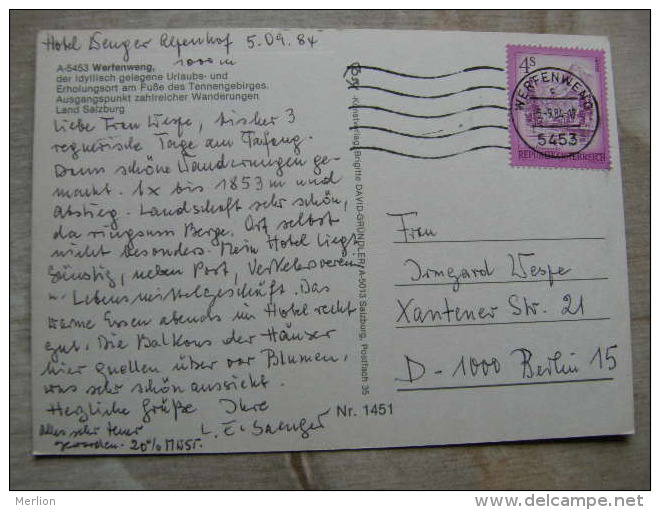 Hotel Wenger Alpenhof 5.09.84
1000 m
A-5453 Werfenweng,
der idyllisch gelegene Urlaubs- und
Erholungsort am Fuße des Tennengebirges.
Ausgangspunkt zahlreicher Wanderungen
Land Salzburg
Liebe Frau Wespe, bisher 3
regnerische Tage am Anfang.
Dann schöne Wanderungen ge-
macht. 1x bis 1853 m und
Abstieg. Landschaft sehr schön,
da ringsum Berge. Ort selbst
nicht besonders. Mein Hotel liegt
günstig, neben Post, Verkehrsverein
u. Lebensmittelgeschäft. Das
warme Essen abends im Hotel recht
gut. Die Balkons der Häuser
hier quellen über vor Blumen,
was sehr schön aussieht.
Herzliche Grüße Ihre
L. E. Saenger
Alles sehr teuer
geworden. 20% MWST.
Kunstverlag Brigitte DAVID-GRÜNDLER/A-5013 Salzburg, Postfach 35
Nr. 1451
4S
REPUBLIK ÖSTERREICH
WERFENWENG
5453
Frau
Irmgard Wespe
Xantener Str. 21
D-1000 Berlin 15
Merlion
delcampe.net